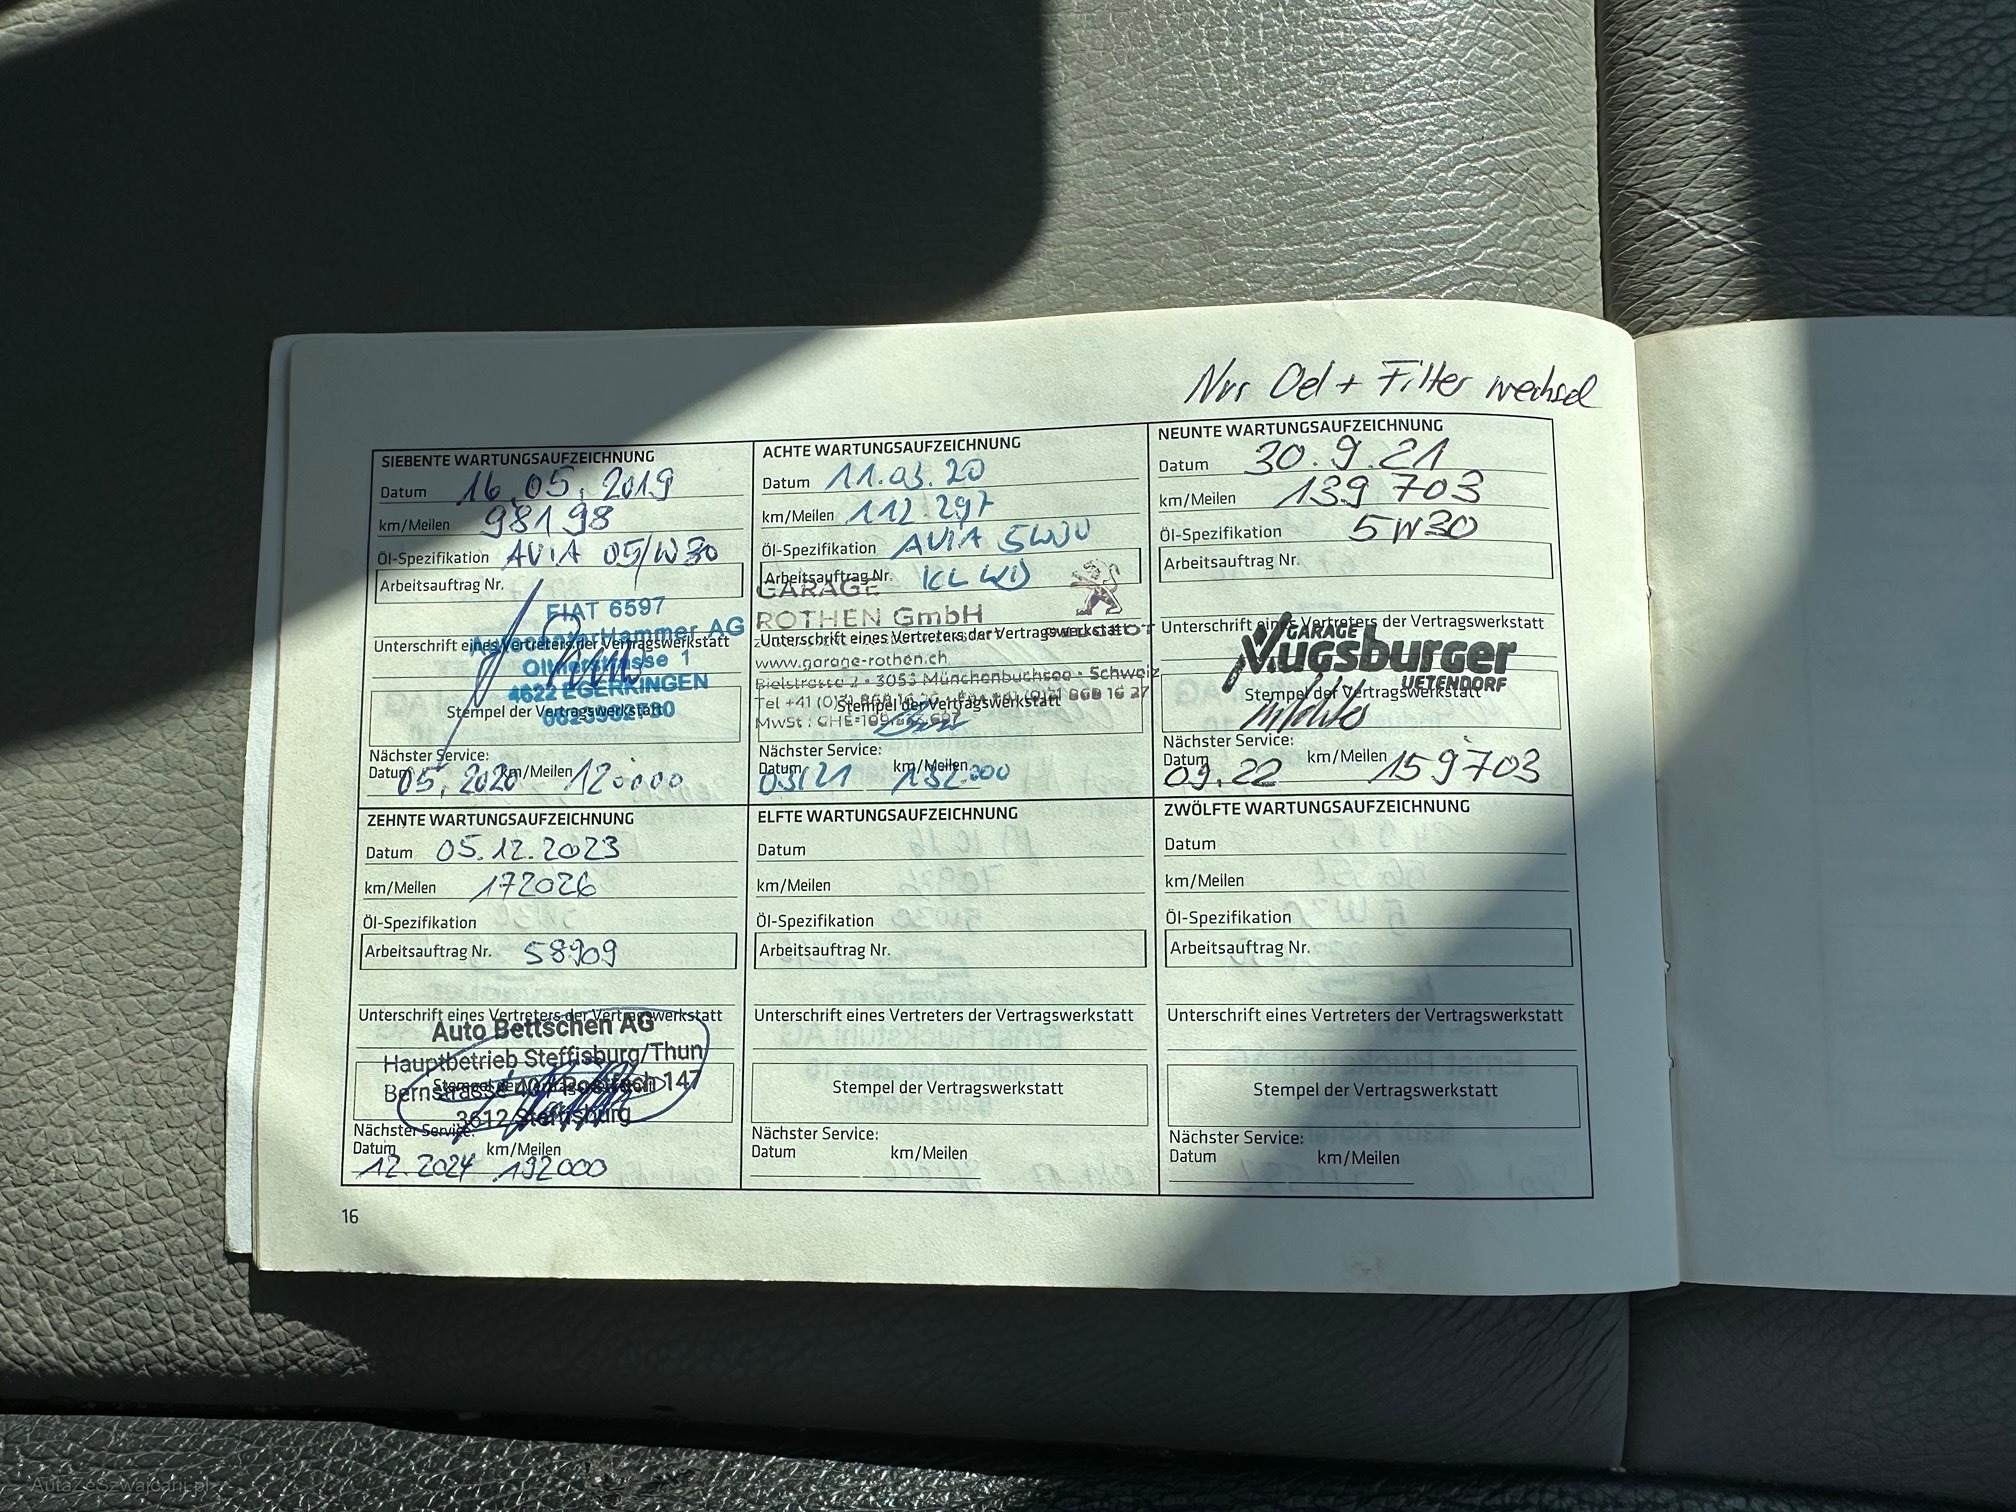 Nur Oel + Filter wechsel
SIEBENTE WARTUNGSAUFZEICHNUNG
Datum 16.05.2019
km/Meilen 98198
Öl-Spezifikation AVIA 05/W30
Arbeitsauftrag Nr.
FIAT 6597
Hammer AG
Unterschrift eines Vertreters der Vertragswerkstatt
Oltnerstrasse 1
4622 EGERKINGEN
Stempel der Vertragswerkstatt
Nächster Service:
Datum 05.2020 km/Meilen 120000
ACHTE WARTUNGSAUFZEICHNUNG
Datum 11.03.20
km/Meilen 112 297
Öl-Spezifikation AVIA 5W30
Arbeitsauftrag Nr.
GARAGE
ROTHEN GmbH
Unterschrift eines Vertreters der Vertragswerkstatt
www.garage-rothen.ch
Bielstrasse 2 • 3053 Münchenbuchsee • Schweiz
Stempel der Vertragswerkstatt
Nächster Service:
Datum 03/21 km/Meilen 132.000
NEUNTE WARTUNGSAUFZEICHNUNG
Datum 30.9.21
km/Meilen 139 703
Öl-Spezifikation 5W30
Arbeitsauftrag Nr.
Unterschrift eines Vertreters der Vertragswerkstatt
GARAGE
Augsburger
UETENDORF
Stempel der Vertragswerkstatt
Nächster Service:
Datum 09.22 km/Meilen 159703
ZEHNTE WARTUNGSAUFZEICHNUNG
Datum 05.12.2023
km/Meilen 172026
Öl-Spezifikation
Arbeitsauftrag Nr. 58909
Unterschrift eines Vertreters der Vertragswerkstatt
Auto Bettschen AG
Hauptbetrieb Steffisburg/Thun
Bernstrasse Postfach 147
3612 Steffisburg
Nächster Service:
Datum 12.2024 km/Meilen 192000
ELFTE WARTUNGSAUFZEICHNUNG
Datum
km/Meilen
Öl-Spezifikation
Arbeitsauftrag Nr.
Unterschrift eines Vertreters der Vertragswerkstatt
Stempel der Vertragswerkstatt
Nächster Service:
Datum km/Meilen
ZWÖLFTE WARTUNGSAUFZEICHNUNG
Datum
km/Meilen
Öl-Spezifikation
Arbeitsauftrag Nr.
Unterschrift eines Vertreters der Vertragswerkstatt
Stempel der Vertragswerkstatt
Nächster Service:
Datum km/Meilen
16
AutaZeSzwajcarii.pl